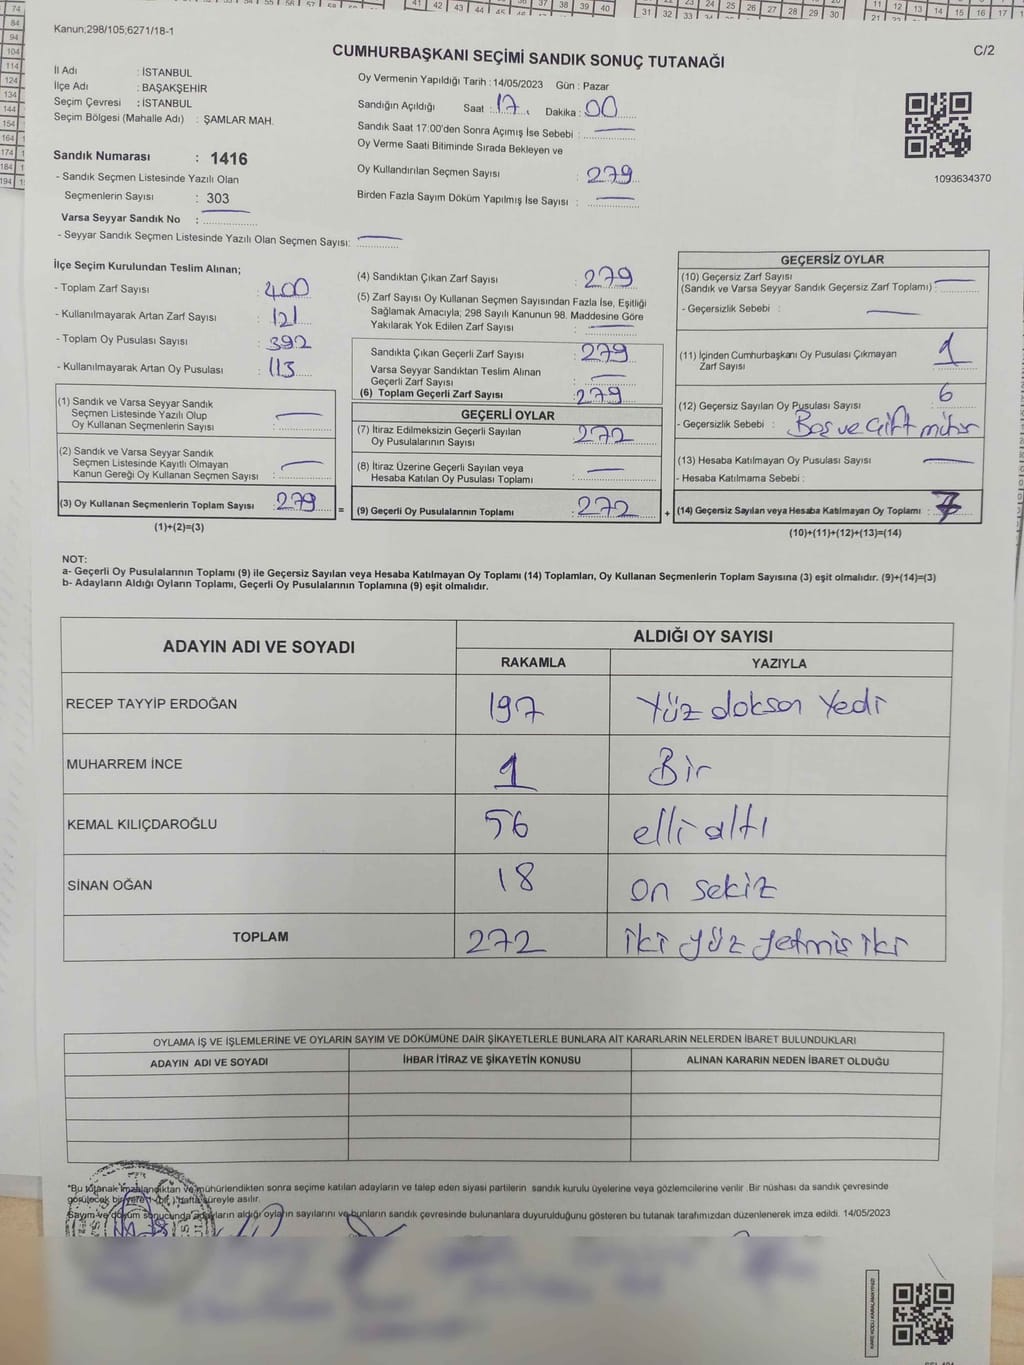 Kanun;298/105;6271/18-1
CUMHURBAŞKANI SEÇİMİ SANDIK SONUÇ TUTANAĞI
C/2
İl Adı : İSTANBUL
İlçe Adı : BAŞAKŞEHİR
Seçim Çevresi : İSTANBUL
Seçim Bölgesi (Mahalle Adı) : ŞAMLAR MAH.
Sandık Numarası : 1416
- Sandık Seçmen Listesinde Yazılı Olan
Seçmenlerin Sayısı : 303
Varsa Seyyar Sandık No :
- Seyyar Sandık Seçmen Listesinde Yazılı Olan Seçmen Sayısı:
Oy Vermenin Yapıldığı Tarih : 14/05/2023 Gün : Pazar
Sandığın Açıldığı Saat : 17 Dakika : 00
Sandık Saat 17:00'den Sonra Açımış İse Sebebi :
Oy Verme Saati Bitiminde Sırada Bekleyen ve
Oy Kullandırılan Seçmen Sayısı : 279
Birden Fazla Sayım Döküm Yapılmış İse Sayısı :
1093634370
İlçe Seçim Kurulundan Teslim Alınan;
- Toplam Zarf Sayısı : 400
- Kullanılmayarak Artan Zarf Sayısı : 121
- Toplam Oy Pusulası Sayısı : 392
- Kullanılmayarak Artan Oy Pusulası : 113
(1) Sandık ve Varsa Seyyar Sandık
Seçmen Listesinde Yazılı Olup
Oy Kullanan Seçmenlerin Sayısı :
(2) Sandık ve Varsa Seyyar Sandık
Seçmen Listesinde Kayıtlı Olmayan
Kanun Gereği Oy Kullanan Seçmen Sayısı :
(3) Oy Kullanan Seçmenlerin Toplam Sayısı : 279 =
(1)+(2)=(3)
(4) Sandıktan Çıkan Zarf Sayısı : 279
(5) Zarf Sayısı Oy Kullanan Seçmen Sayısından Fazla İse, Eşitliği
Sağlamak Amacıyla; 298 Sayılı Kanunun 98. Maddesine Göre
Yakılarak Yok Edilen Zarf Sayısı :
Sandıkta Çıkan Geçerli Zarf Sayısı : 279
Varsa Seyyar Sandıktan Teslim Alınan
Geçerli Zarf Sayısı :
(6) Toplam Geçerli Zarf Sayısı : 279
GEÇERLİ OYLAR
(7) İtiraz Edilmeksizin Geçerli Sayılan
Oy Pusulalarının Sayısı : 272
(8) İtiraz Üzerine Geçerli Sayılan veya
Hesaba Katılan Oy Pusulası Toplamı :
(9) Geçerli Oy Pusulalarının Toplamı : 272 +
GEÇERSİZ OYLAR
(10) Geçersiz Zarf Sayısı
(Sandık ve Varsa Seyyar Sandık Geçersiz Zarf Toplamı) :
- Geçersizlik Sebebi :
(11) İçinden Cumhurbaşkanı Oy Pusulası Çıkmayan
Zarf Sayısı : 1
(12) Geçersiz Sayılan Oy Pusulası Sayısı : 6
- Geçersizlik Sebebi : Boş ve Çift mühür
(13) Hesaba Katılmayan Oy Pusulası Sayısı :
- Hesaba Katılmama Sebebi :
(14) Geçersiz Sayılan veya Hesaba Katılmayan Oy Toplamı : 7
(10)+(11)+(12)+(13)=(14)
NOT:
a- Geçerli Oy Pusulalarının Toplamı (9) ile Geçersiz Sayılan veya Hesaba Katılmayan Oy Toplamı (14) Toplamları, Oy Kullanan Seçmenlerin Toplam Sayısına (3) eşit olmalıdır. (9)+(14)=(3)
b- Adayların Aldığı Oyların Toplamı, Geçerli Oy Pusulalarının Toplamına (9) eşit olmalıdır.
ADAYIN ADI VE SOYADI
ALDIĞI OY SAYISI
RAKAMLA
YAZIYLA
RECEP TAYYİP ERDOĞAN 197 Yüz doksan Yedi
MUHARREM İNCE 1 Bir
KEMAL KILIÇDAROĞLU 56 elli altı
SİNAN OĞAN 18 on sekiz
TOPLAM 272 iki yüz yetmiş iki
OYLAMA İŞ VE İŞLEMLERİNE VE OYLARIN SAYIM VE DÖKÜMÜNE DAİR ŞİKAYETLERLE BUNLARA AİT KARARLARIN NELERDEN İBARET BULUNDUKLARI
ADAYIN ADI VE SOYADI
İHBAR İTİRAZ VE ŞİKAYETİN KONUSU
ALINAN KARARIN NEDEN İBARET OLDUĞU
*Bu tutanak imzalandıktan ve mühürlendikten sonra seçime katılan adayların ve talep eden siyasi partilerin sandık kurulu üyelerine veya gözlemcilerine verilir .Bir nüshası da sandık çevresinde
görülecek bir yere süreyle asılır.
Sayım ve döküm sonucunda adayların aldığı oyların sayılarını ve bunların sandık çevresinde bulunanlara duyurulduğunu gösteren bu tutanak tarafımızdan düzenlenerek imza edildi. 14/05/2023